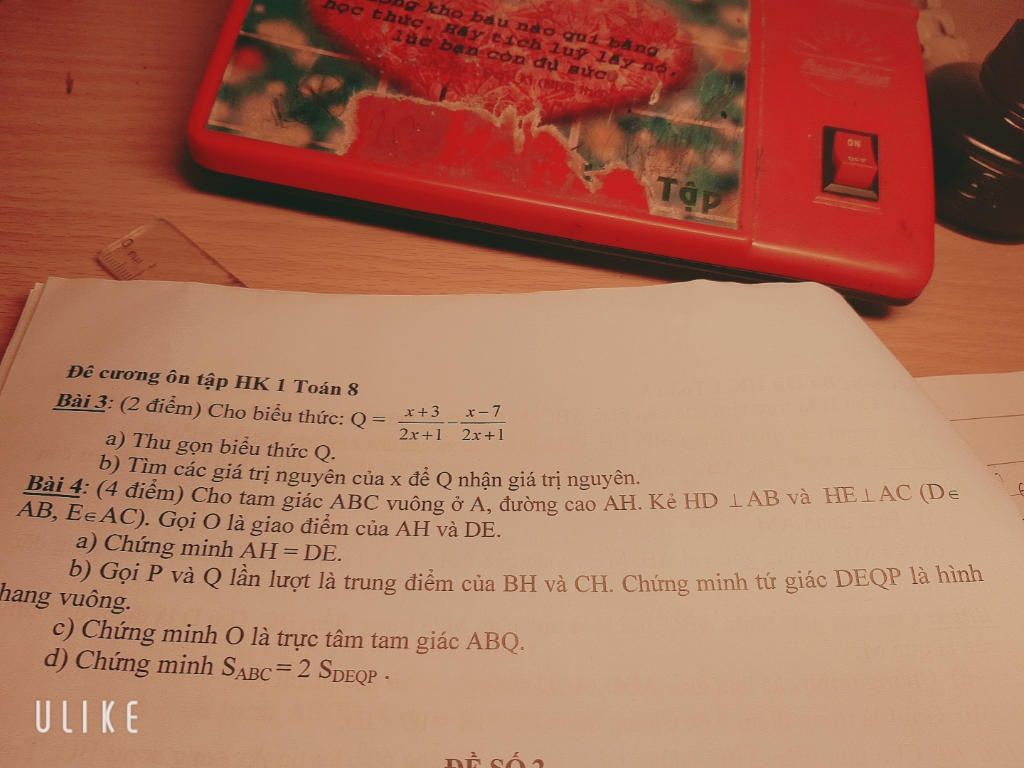 kho báu nào quí bằng
học thức. Hãy tích luỹ lấy nó,
lúc bạn còn đủ sức.
ON
OFF
Tập
0
Đề cương ôn tập HK 1 Toán 8
Bài 3: (2 điểm) Cho biểu thức: Q = x+3/2x+1 − x−7/2x+1
a) Thu gọn biểu thức Q.
b) Tìm các giá trị nguyên của x để Q nhận giá trị nguyên.
Bài 4: (4 điểm) Cho tam giác ABC vuông ở A, đường cao AH. Kẻ HD ⊥ AB và HE ⊥ AC (D∈
AB, E∈AC). Gọi O là giao điểm của AH và DE.
a) Chứng minh AH = DE.
b) Gọi P và Q lần lượt là trung điểm của BH và CH. Chứng minh tứ giác DEQP là hình
hang vuông.
c) Chứng minh O là trực tâm tam giác ABQ.
d) Chứng minh SABC = 2 SDEQP .
ULIKE
ĐỀ SỐ 2